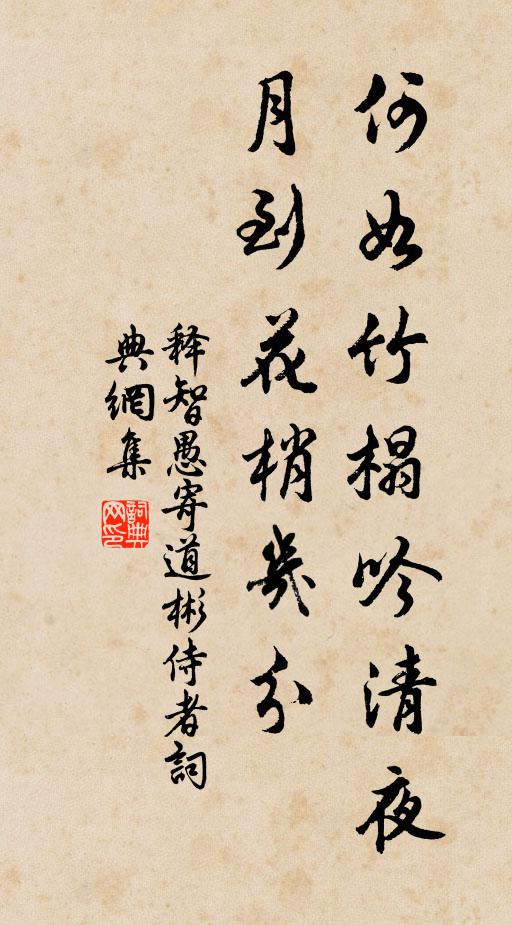 何如竹榻吟清夜
月到花梢幾分
释智愚寄道彬侍者詞
典網集
詞典
网印